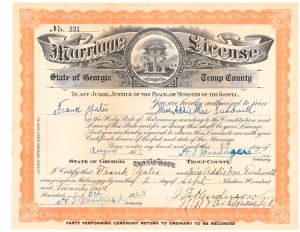 No. 231
Marriage License
State of Georgia Troup County
TO ANY JUDGE, JUSTICE OF THE PEACE, OR MINISTER OF THE GOSPEL.
You are hereby authorized to join
Frank Yates and Miss Addie Mae Tredwell
in the Holy State of Matrimony, according to the Constitution and
Laws of this State, and for so doing this shall be your License.
And you are hereby required to return this License to me with your
Certificate hereon of the fact and date of the Marriage.
Given under my hand and seal, this
Ordinary
STATE OF GEORGIA Certificate TROUP COUNTY
I Certify that Frank Yates and Miss Addie Mae Tredwell
were joined in Matrimony by me this 2 day of Sept. Nineteen Hundred
and Twenty
Recorded
Ordinary
PARTY PERFORMING CEREMONY RETURN TO ORDINARY TO BE RECORDED